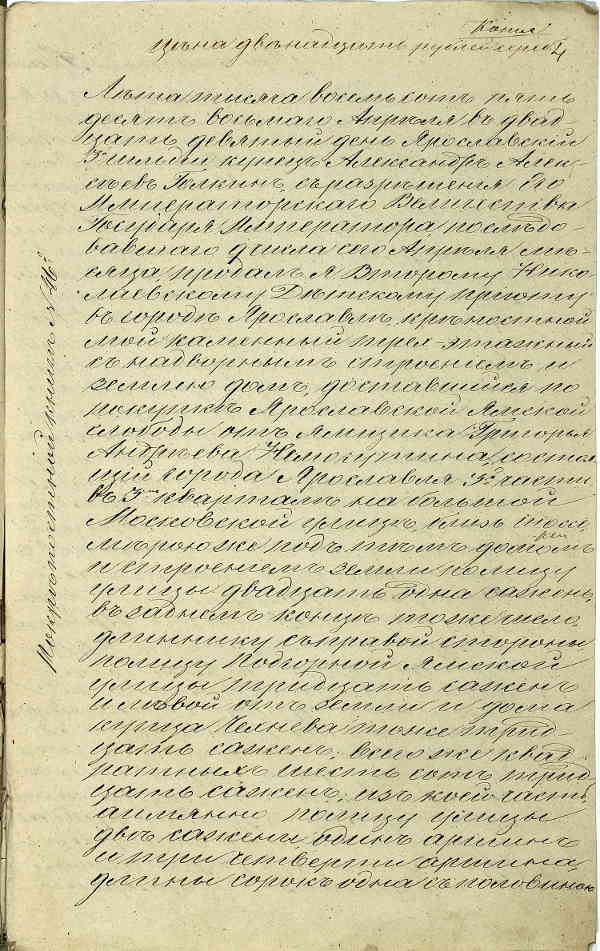 Копия
цѣна двѣнадцать рублей сереб.
Лѣта тысяча восемь сотъ пять
десятъ восьмаго Апрѣля въ двад
цать девятый день Ярославскій
3й гильдіи купецъ Александръ Алек-
сѣевъ съ разрѣшенія Его
Императорскаго Величества
Государя Императора послѣдо-
вавшаго сего Апрѣля мѣ-
сяца продалъ я Второму Нико-
лаевскому Дѣтскому пріюту
въ городѣ Ярославлѣ, крѣпостной
мой каменный трех-этажный
съ надворнымъ строеніемъ и
землею домъ, доставшійся по
покупкѣ Ярославской Ямской
слободы отъ Ямщика Григорья
Андрѣева состоя
щій города Ярославля 3й части
въ 3мъ кварталѣ на большой
Московской улицѣ, близь шоссе,
мѣрою же подъ тѣмъ домомъ
и строеніемъ земли полицу
улицы двадцать одна сажень,
въ заднемъ концѣ тоже число
длиннику съ правой стороны
полицу Подгорной Ямской
улицы тридцать сажень
и лѣвой отъ земли и дома
купца тоже трид
цать сажень, всего же квад
ратныхъ шесть сотъ трид
цать сажень, изъ коей часть,
аимянно полицу улицы
двѣ сажени одинъ аршинъ
и три четверти аршина,
длины сорокъ одна съ половиною
По крѣпостной книгѣ № 46й